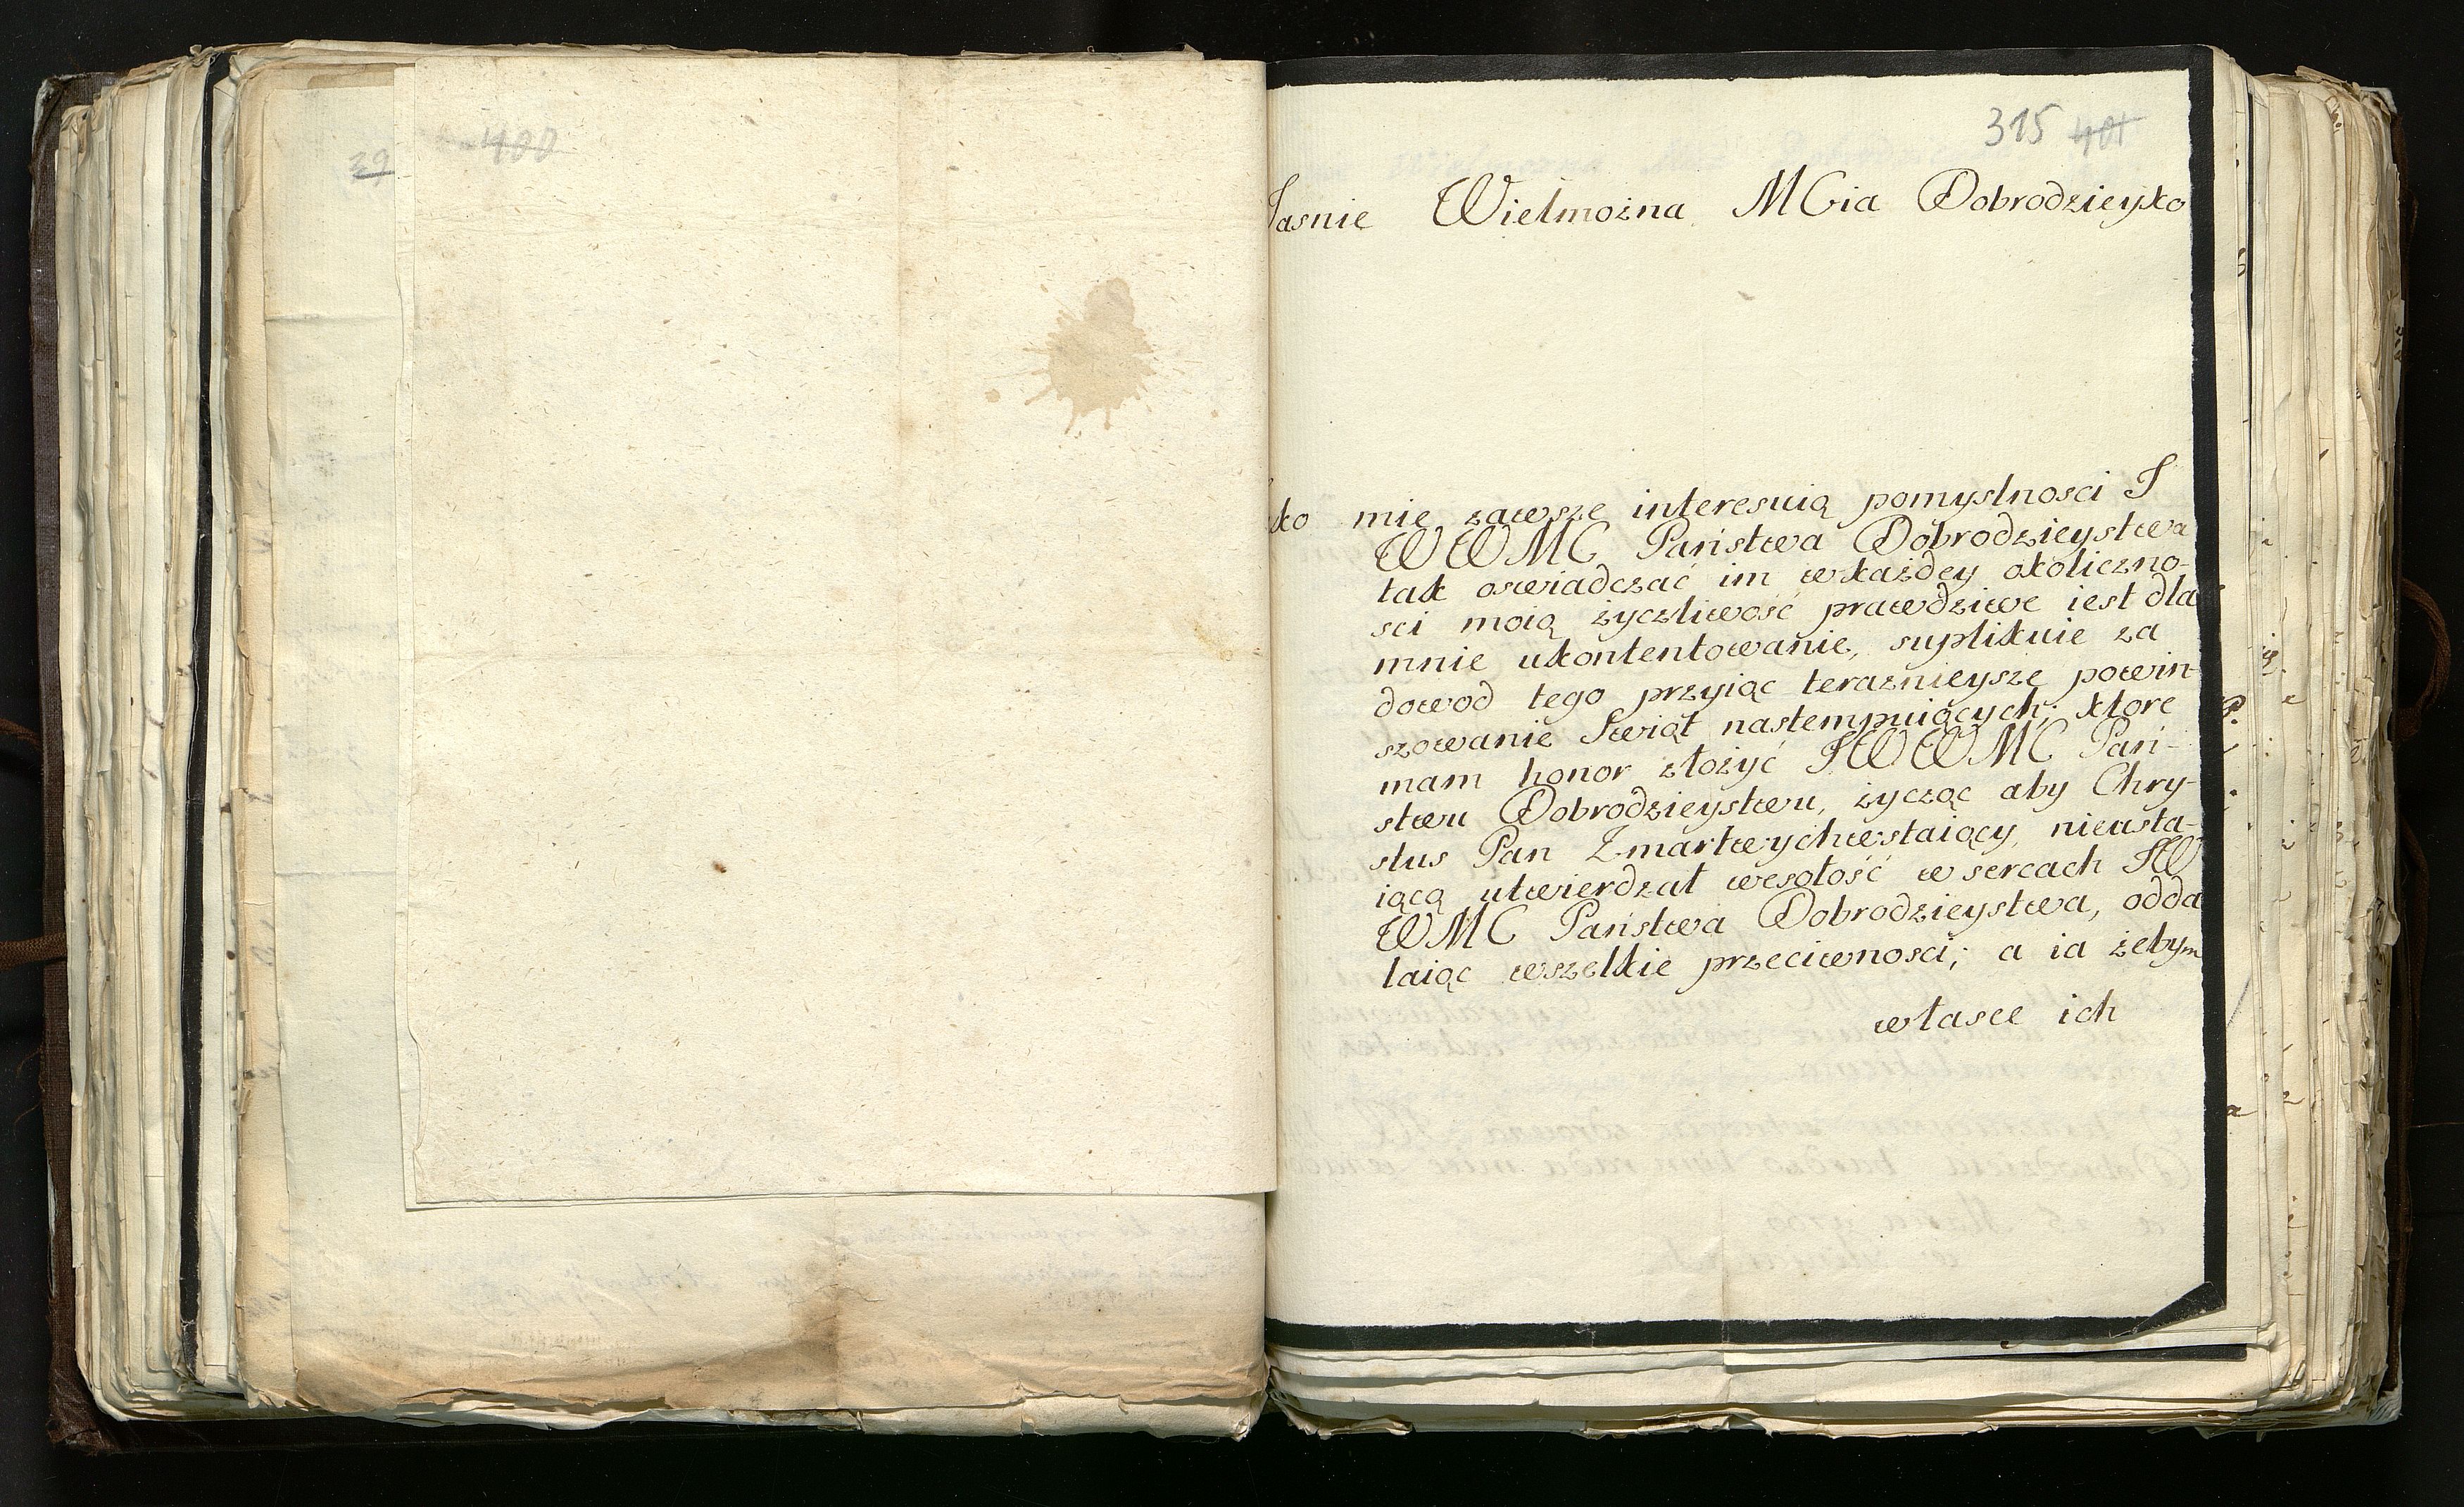 29 400
315 401
Jasnie Wielmożna MCia Dobrodzieyko
ko mie zawsze interesuią pomyslnosci J
WWMC Państwa Dobrodzieystwa
tak oswiadczać im wkażdey okoliczno-
sci moią życzliwość prawdziwe iest dla
mnie ukontentowanie, suplikuie za
dowod tego przyiąc teraznieysze powin-
szowanie Swiąt nastempuiących; ktore
mam honor złożyć JWWMC Pań-
stwu Dobrodzieystwu, życząc aby Chry-
stus Pan Zmartwychwstaiący, nieusta-
iącą utwierdzał wesołość w sercach JW
WMC Państwa Dobrodzieystwa, odda
laiąc wszelkie przeciwnosci; a ia żebym
własce ich